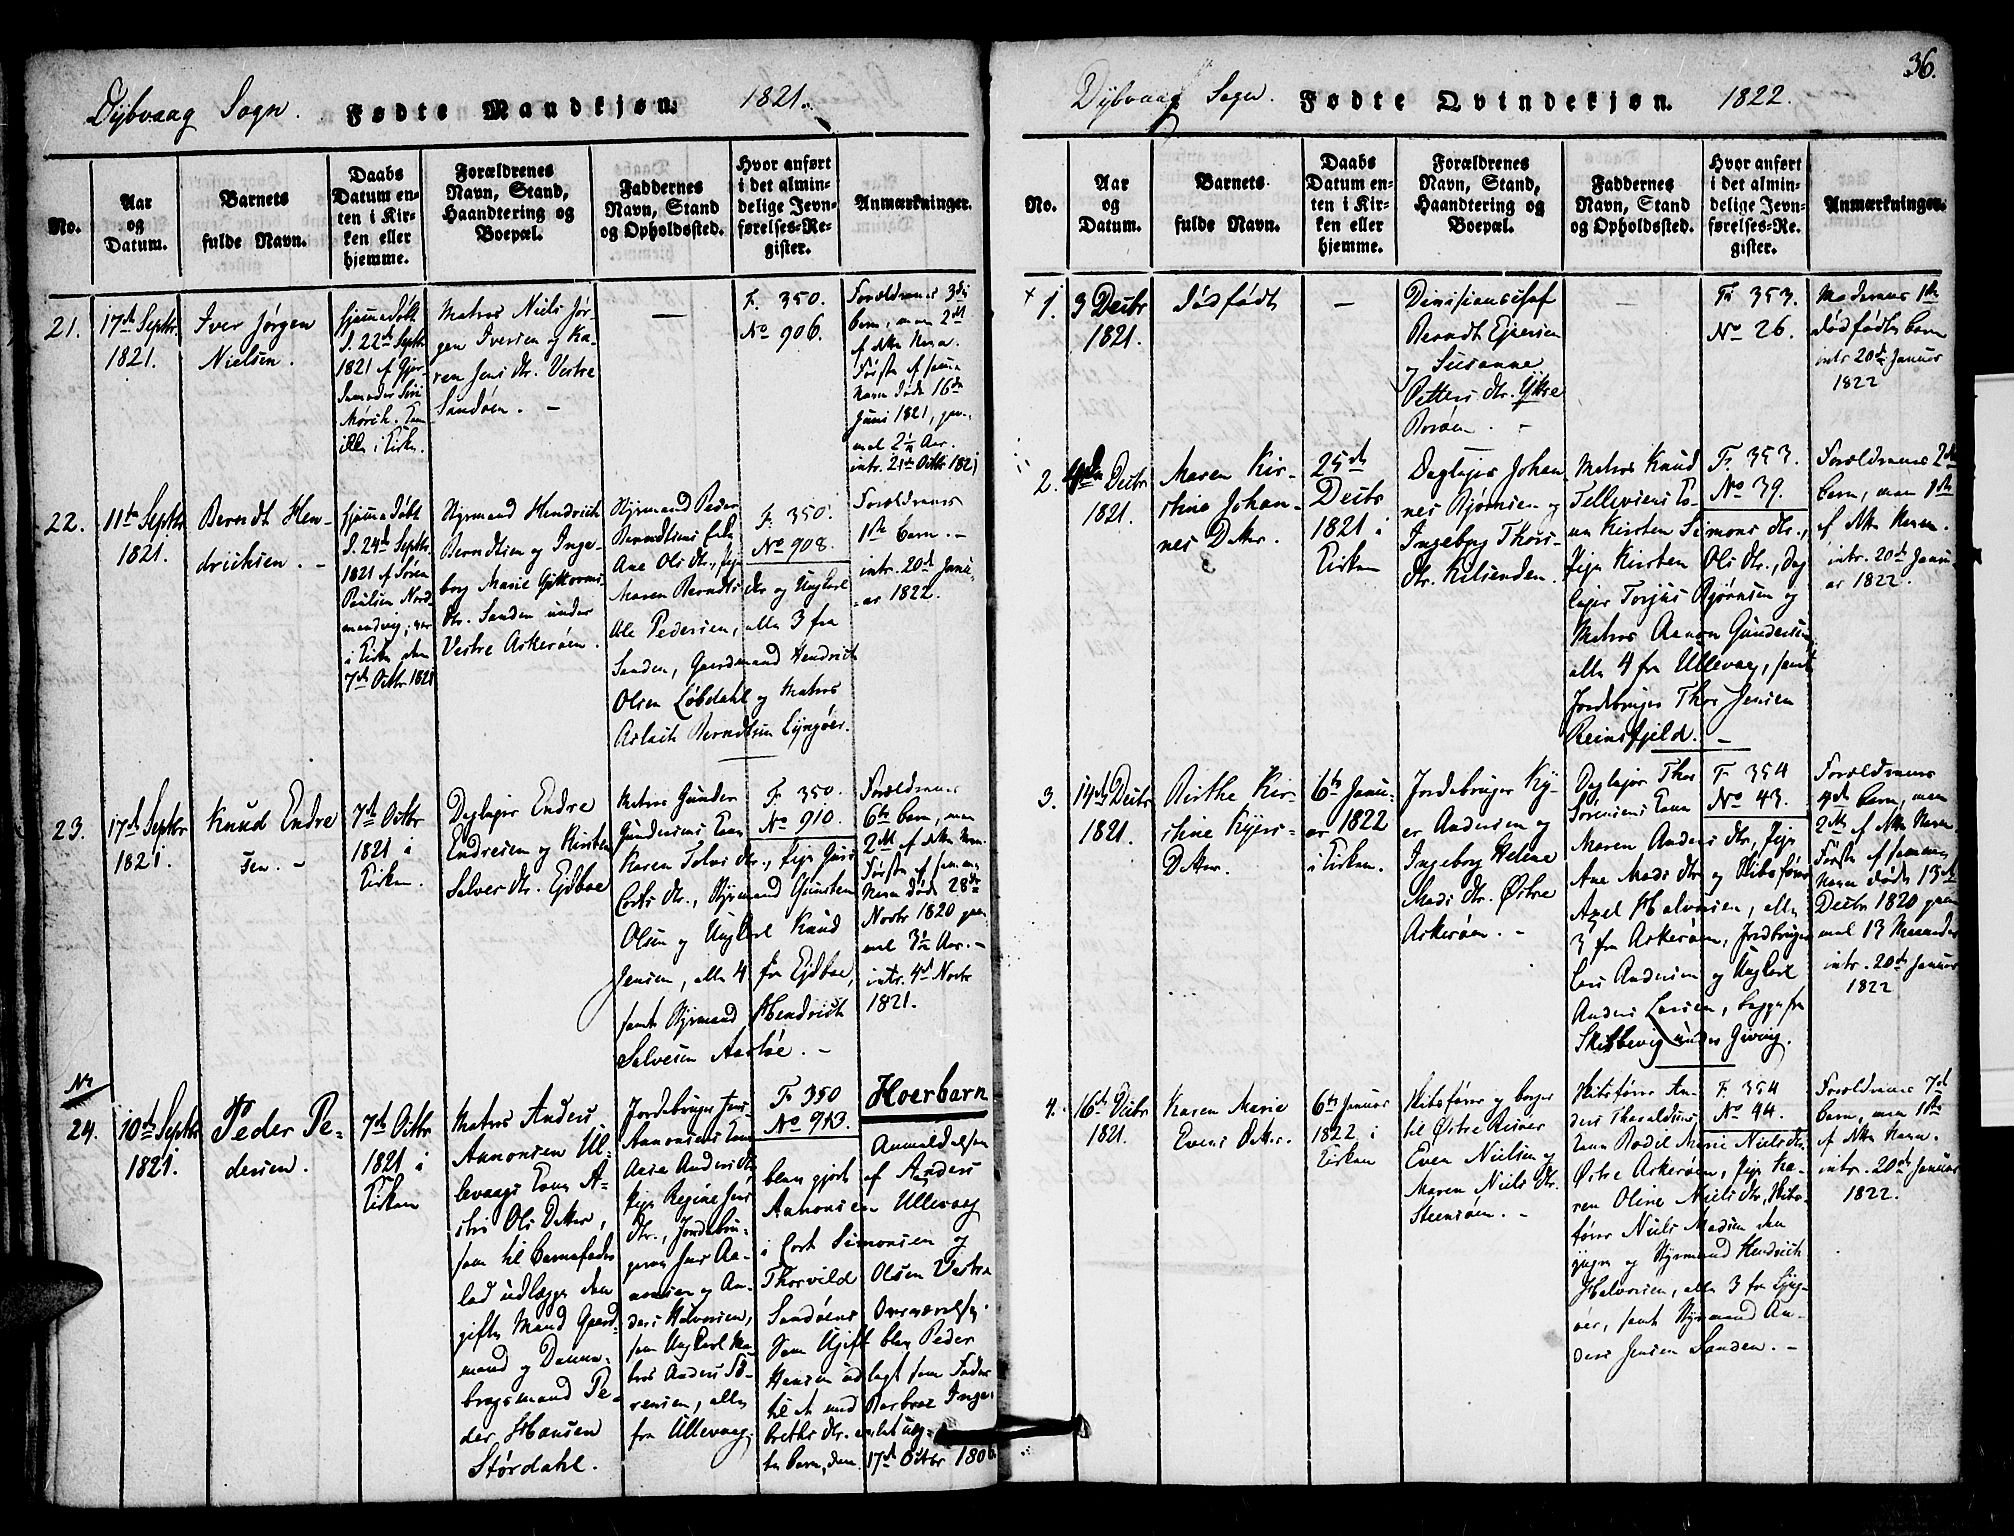 Dybvaag Sogn. Fødte Mandkjøn. 1821.
No.
Aar
og
Datum.
Barnets
fulde Navn.
Daabs
Datum en-
ten i Kir-
ken eller
hjemme.
Forældrenes
Navn, Stand,
Haandtering og
Boepæl.
Faddernes
Navn, Stand
og Opholdssted.
Hvor anført
i det almin-
delige Jevn-
førelses-Re-
gister.
Anmærkninger.
21.
17de Septbr
1821.
Iver Jørgen
Nielsen.
hjemedøbt
d. 22de Septbr
1821 af
Matros Niels Jør-
gen Iversen og Ka-
ren Jens Dtr. Vestre
Sandøen. –
—
F. 350.
No 906.
Forældrenes 3die
Barn, men 2det
af dette Navn.
Første af samme
Navn døde 16de
Juni 1821, gam-
mel 2½ Aar.
intr. 21de Octbr 1821
22.
11te Septbr
1821.
Berndt Hen-
drichsen. –
hjemedøbt
d. 24de Septbr
1821 af Søren
Paulsen Nord-
mandvig; var
i Kirken den
7de Octbr 1821
Styrmand Hendrich
Berndtsen og Inge-
borg Marie Guttorms
Dtr. Sanden under
Vestre Askerøen.
Styrmand Peder
Berndtsens Enke
Ane Ols Dtr., Pige
Maren Berndts Dtr og Ungkarl
Ole Pedersen, alle 3 fra
Sanden, Gaardmand Hendrich
Olsen Løbdahl og Matros
Aslach Berndtsen Lyngøer.
F. 350.
No 908.
Forældrenes
1ste Barn. –
intr. 20de Janu-
ar 1822.
23.
17de Septbr
1821.
Knud Endre
sen. –
7de Octbr
1821 i
Kirken.
Dagleier Endre
Endresen og Kirsten
Salves Dtr. Eidboe
Matros Gunder
Gundersens Kone
Karen Salves Dtr., Pige
Corts Dtr., Styrmand Gunsten
Olsen og Ungkarl Knud
Jensen, alle 4 fra Eidboe,
samt Styrmand Hendrich
Salvesen Aasløe. –
F. 350.
No 910.
Forældrenes
6te Barn, men
2det af dette Navn.
Første af samme
Navn døde 28de
Novbr 1820 gam-
mel 3½ Aar. –
intr. 4de Novbr
1821.
24.
10de Septbr
1821.
Peder Pe-
dersen.
7de Octbr
1821 i
Kirken
Matros Anders
Aanonsen Ul-
levaags Kone A-
stri Ols Datter,
som til Barnefader
lod udlægge den
gifte Mand Gaard-
mand og Danne-
brogsmand Pe-
der Hansen
Størdahl.
Jordebruger Jens
Aanonsens Kone
Aase Anders Dtr
Pige Regine Jens
Dtr., Jordebru-
gerne Jens Aa-
nonsen og An-
ders Halvorsen,
samt Ungkarl Ma-
tros Anders Sø-
rensen, alle
fra Ullevaag.
F. 350
No 913.
Hoerbarn
Anmeldelsen
blev gjort af Anders
Aanonsen Ullevaag
i Cort Simonsen og
Thorvild Olsen Vestre
Sandøens Overværelse.
Som Ugift blev Peder
Hansen udlagt som Fader
til et med Barbroe Inge-
breths Dtr. avlet uæg-
te Barn, den 17de Octbr 1806.
36.
Dybvaag Sogn. Fødte Qvindekjøn. 1822.
No.
Aar
og
Datum.
Barnets
fulde Navn.
Daabs
Datum en-
ten i Kir-
ken eller
hjemme.
Forældrenes
Navn, Stand,
Haandtering og
Boepæl.
Faddernes
Navn, Stand
og Opholdssted.
Hvor anført
i det almin-
delige Jevn-
førelses-Re-
gister.
Anmærkninger.
+ 1.
3 Decbr
1821.
Dødfødt
—
Divisionschef
Berndt Ejersen
og Susanne
Petters Dtr. Ytre
Borøen. –
—
F. 353.
No 26.
Moderens 1ste
dødfødte Barn
intr. 20de Januar
1822
2.
4de Decbr
1821.
Maren Kir-
stine Johan-
nes Datter.
25de
Decbr
1821 i
Kirken
Dagleier Johan
nes Bjørnsen og
Ingeborg Thors
Dtr. Kilsenden.
Matros Knud
Tellevsens Ko-
ne Kirsten Simons Dtr.,
Pige Kirsten Ols Dtr., Dag
leier Torjus Bjørnsen og
Matros Aanon Gundersen,
alle 4 fra Ullevaag, samt
Jordebruger Thor Jensen
Reinsfjeld. –
F. 353.
No 39.
Forældrenes 2det
Barn, men 1ste
af dette Navn.
intr. 20de Janu-
ar 1822.
3.
14de Decbr
1821.
Birthe Kir-
stine Kjers-
Datter.
6te Janu-
ar 1822
i Kirken.
Jordebruger Ky-
er Andersen og
Ingeborg Helene
Mads Dtr. Østre
Askerøen. –
Dagleier Thor
Sørensens Kone
Maren Anders Dtr., Pige
Ane Mads Dtr og Skibsfører
Axel Halvorsen, alle
3 fra Askerøen, Jordbruger
Lars Andersen og Ungkarl
Anders Larsen, begge fra
Skibbevig under Giving.
F. 354
No 43.
Forældrenes
4de Barn, men
2det af dette Navn.
Første af samme
Navn døde 13de
Decbr 1820 gam
mel 13 Maaneder
intr. 20de Januar
1822
4.
16de Decbr
1821.
Karen Marie
Evens Datter.
6te Januar
1822 i
Kirken
Skibsfører og borger
til Østre Riisøer
Even Nielsen og
Maren Niels Dtr.
Steensøen. –
Skibsfører An-
ders Tharaldsens
Kone Bodel Marie Niels Dtr.
Østre Askerøen, Pige Ka-
ren Oline Niels Dtr., Skibs-
fører Niels Madsen den
yngre og Styrmand Hendrich
Halvorsen, alle 3 fra Lyng-
øer, samt Styrmand An-
ders Jensen Sanden. –
F. 354
No 44.
Forældrenes 7de
Barn, men 1ste
af dette Navn.
intr. 20de Januar
1822.